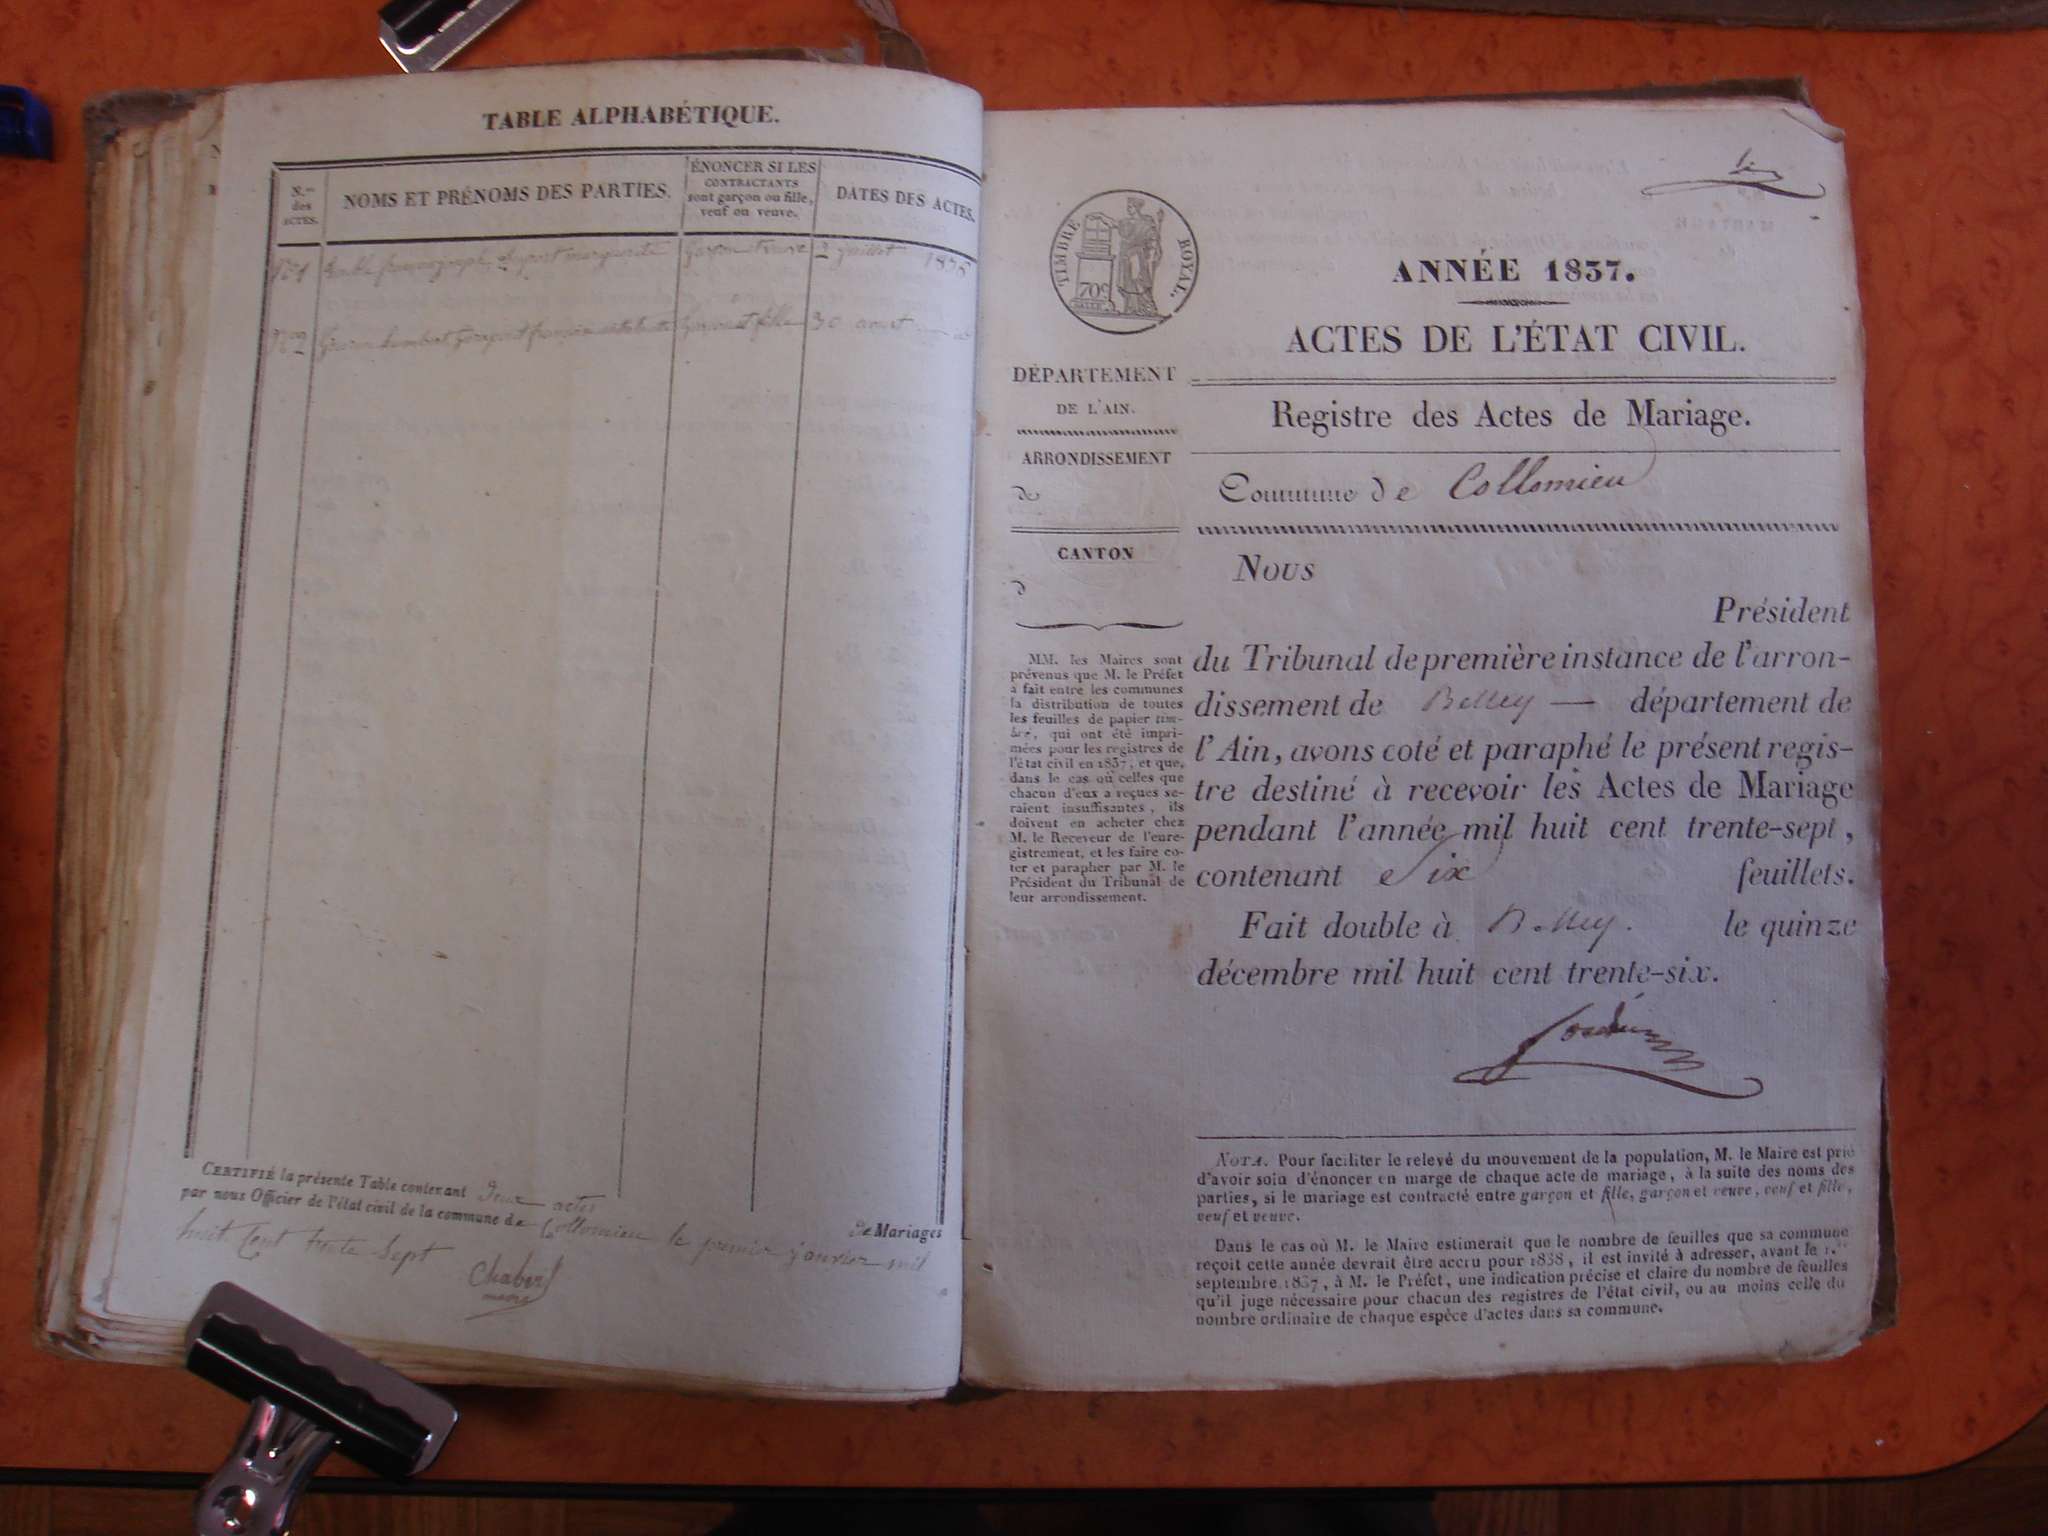 TABLE ALPHABÉTIQUE.
N.ros des ACTES.
NOMS ET PRÉNOMS DES PARTIES.
ÉNONCER SI LES
CONTRACTANTS
sont garçon ou fille,
veuf ou veuve.
DATES DES ACTES.
marguerite garçon et veuve 2 juillet 1836
humbert garçon et fille 30 aout
CERTIFIÉ la présente Table contenant Deux actes de Mariages
par nous Officier de l'état civil de la commune de Collomieu le premier janvier mil
huit Cent trente Sept
Chabert
maire
TIMBRE ROYAL.
70c
ANNÉE 1837.
ACTES DE L'ÉTAT CIVIL.
DÉPARTEMENT
DE L'AIN.
ARRONDISSEMENT
de
CANTON
d
MM. les Maires sont
prévenus que M. le Préfet
a fait entre les communes
la distribution de toutes
les feuilles de papier tim-
bré, qui ont été impri-
mées pour les registres de
l'état civil en 1837, et que,
dans le cas où celles que
chacun d'eux a reçues se-
raient insuffisantes, ils
doivent en acheter chez
M. le Receveur de l'enre-
gistrement, et les faire co-
ter et parapher par M. le
Président du Tribunal de
leur arrondissement.
Registre des Actes de Mariage.
Commune de Collomieu
Nous
Président
du Tribunal de première instance de l'arron-
dissement de Belley — département de
l'Ain, avons coté et paraphé le présent regis-
tre destiné à recevoir les Actes de Mariage
pendant l'année mil huit cent trente-sept,
contenant Six feuillets.
Fait double à Belley. le quinze
décembre mil huit cent trente-six.
NOTA. Pour faciliter le relevé du mouvement de la population, M. le Maire est prié
d'avoir soin d'énoncer en marge de chaque acte de mariage, à la suite des noms des
parties, si le mariage est contracté entre garçon et fille, garçon et veuve, veuf et fille,
veuf et veuve.
Dans le cas où M. le Maire estimerait que le nombre de feuilles que sa commune
reçoit cette année devrait être accru pour 1838, il est invité à adresser, avant le 1.er
septembre 1837, à M. le Préfet, une indication précise et claire du nombre de feuilles
qu'il juge nécessaire pour chacun des registres de l'état civil, ou au moins celle du
nombre ordinaire de chaque espèce d'actes dans sa commune.